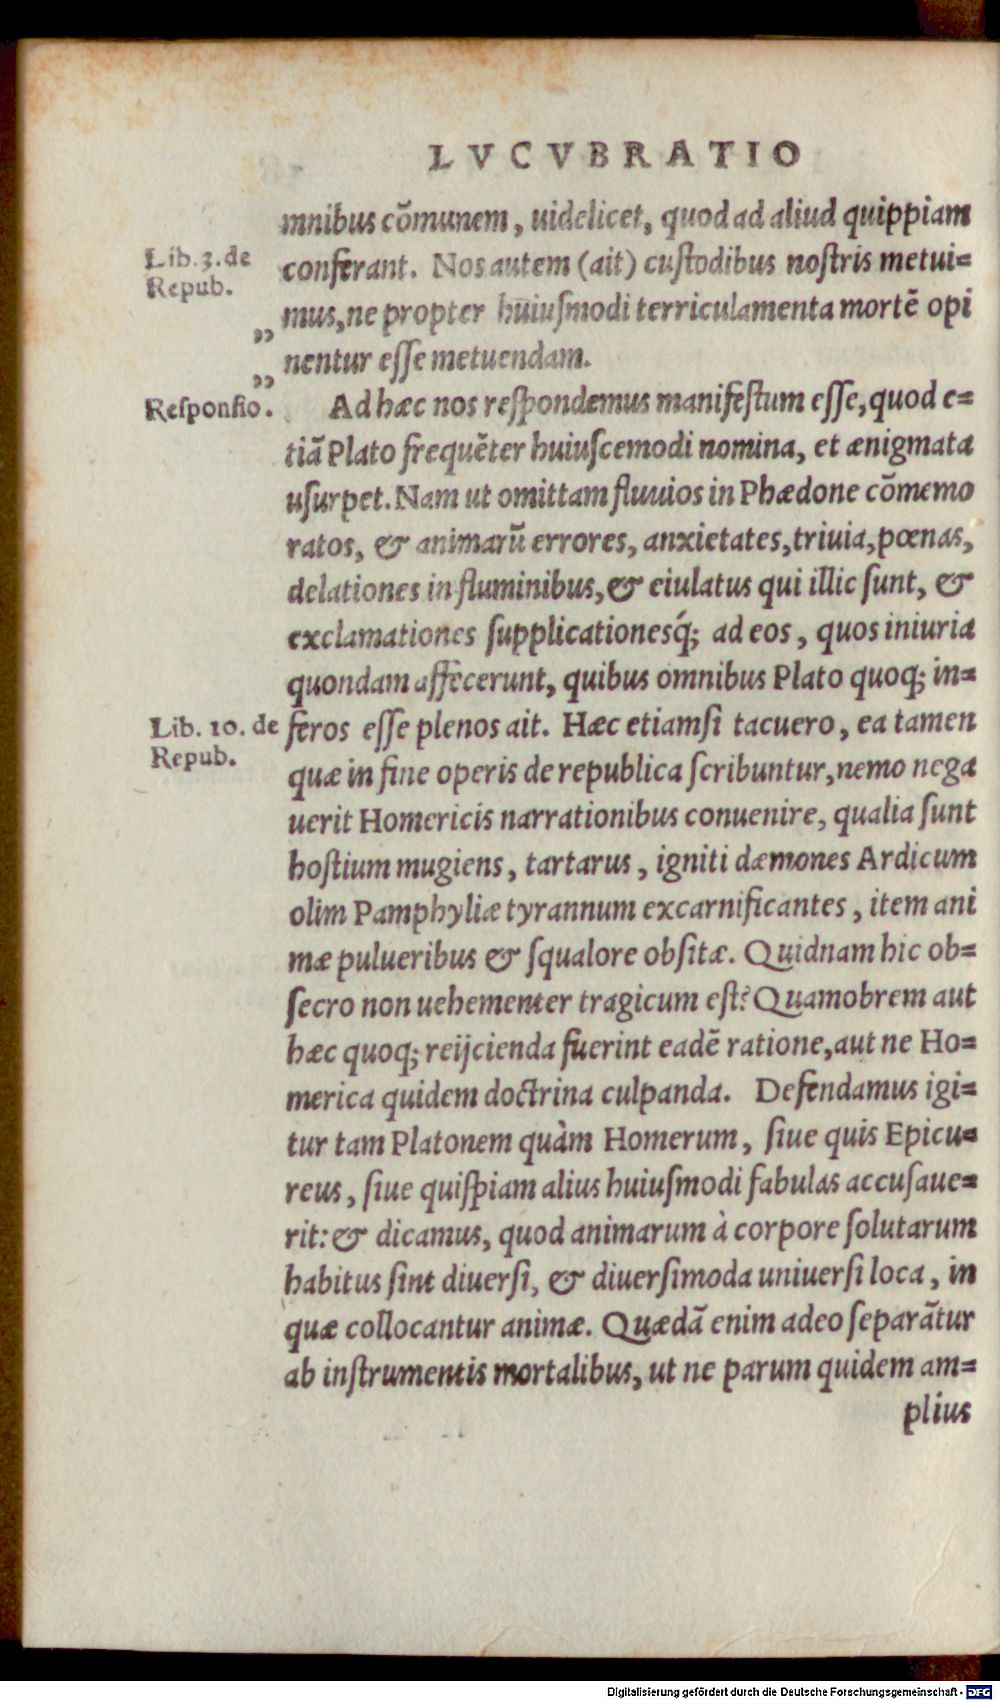 LVCVBRATIO
mnibus cõmunem, uidelicet, quod ad aliud quippiam
Lib. 3. de
Repub.
conferant. Nos autem (ait) custodibus nostris metui=
mus, ne propter huiusmodi terriculamenta mortẽ opi
„
nentur esse metuendam.
„
Responsio.
Ad hæc nos respondemus manifestum esse, quod e=
tiã Plato frequẽter huiuscemodi nomina, et ænigmata
usurpet. Nam ut omittam fluuios in Phædone cõmemo
ratos, & animarũ errores, anxietates, triuia, pœnas,
delationes in fluminibus, & eiulatus qui illic sunt, &
exclamationes supplicationesq́; ad eos, quos iniuria
quondam affecerunt, quibus omnibus Plato quoq; in=
Lib. 10. de
Repub.
feros esse plenos ait. Hæc etiamsi tacuero, ea tamen
quæ in fine operis de republica scribuntur, nemo nega
uerit Homericis narrationibus conuenire, qualia sunt
hostium mugiens, tartarus, igniti dæmones Ardicum
olim Pamphyliæ tyrannum excarnificantes, item ani
mæ pulueribus & squalore obsitæ. Quidnam hic ob=
secro non uehementer tragicum est? Quamobrem aut
hæc quoq; reijcienda fuerint eadẽ ratione, aut ne Ho=
merica quidem doctrina culpanda. Defendamus igi=
tur tam Platonem quàm Homerum, siue quis Epicu=
reus, siue quispiam alius huiusmodi fabulas accusaue=
rit: & dicamus, quod animarum à corpore solutarum
habitus sint diuersi, & diuersimoda uniuersi loca, in
quæ collocantur animæ. Quædã enim adeo separãtur
ab instrumentis mortalibus, ut ne parum quidem am=
plius
Digitalisierung gefördert durch die Deutsche Forschungsgemeinschaft - DFG